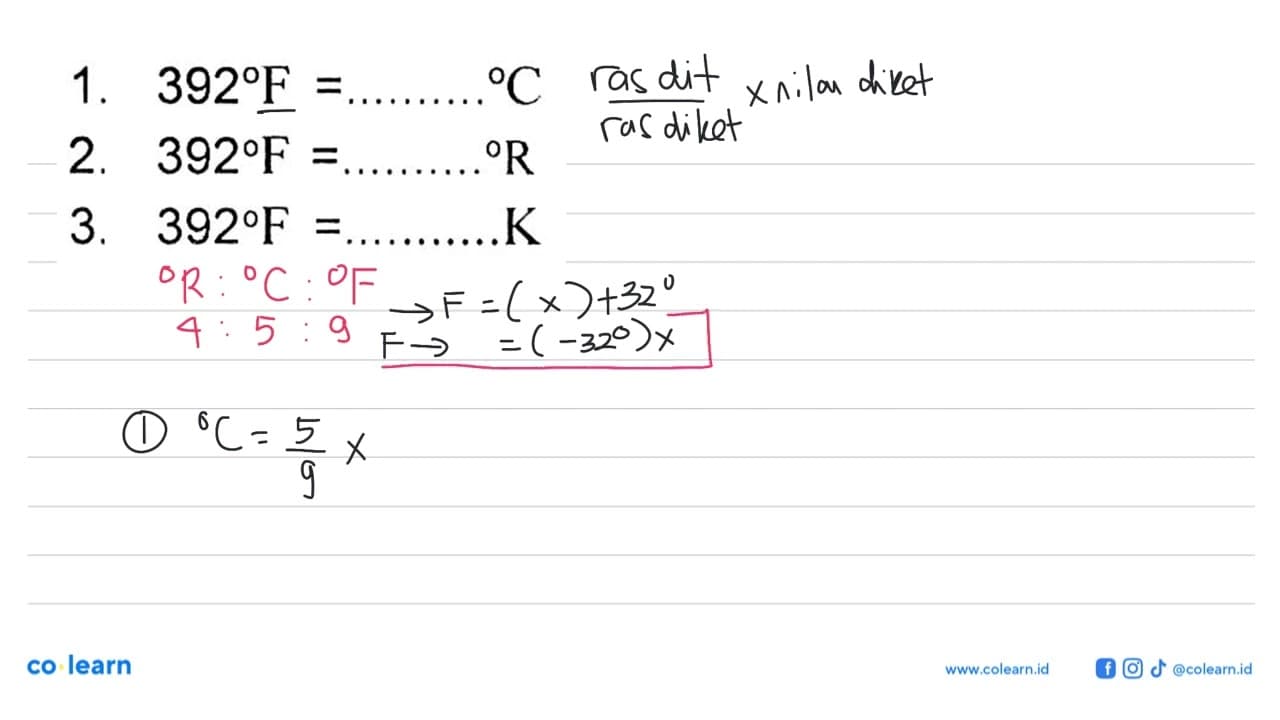 1. 392°F =..........°C
ras dit
ras diket x nilai diket
2. 392°F =..........°R
3. 392°F =...........K
°R : °C : °F
4 : 5 : 9
→ F = ( x ) + 32°
F → = ( -32° ) x
① °C = 5/9 x
co learn
www.colearn.id @colearn.id